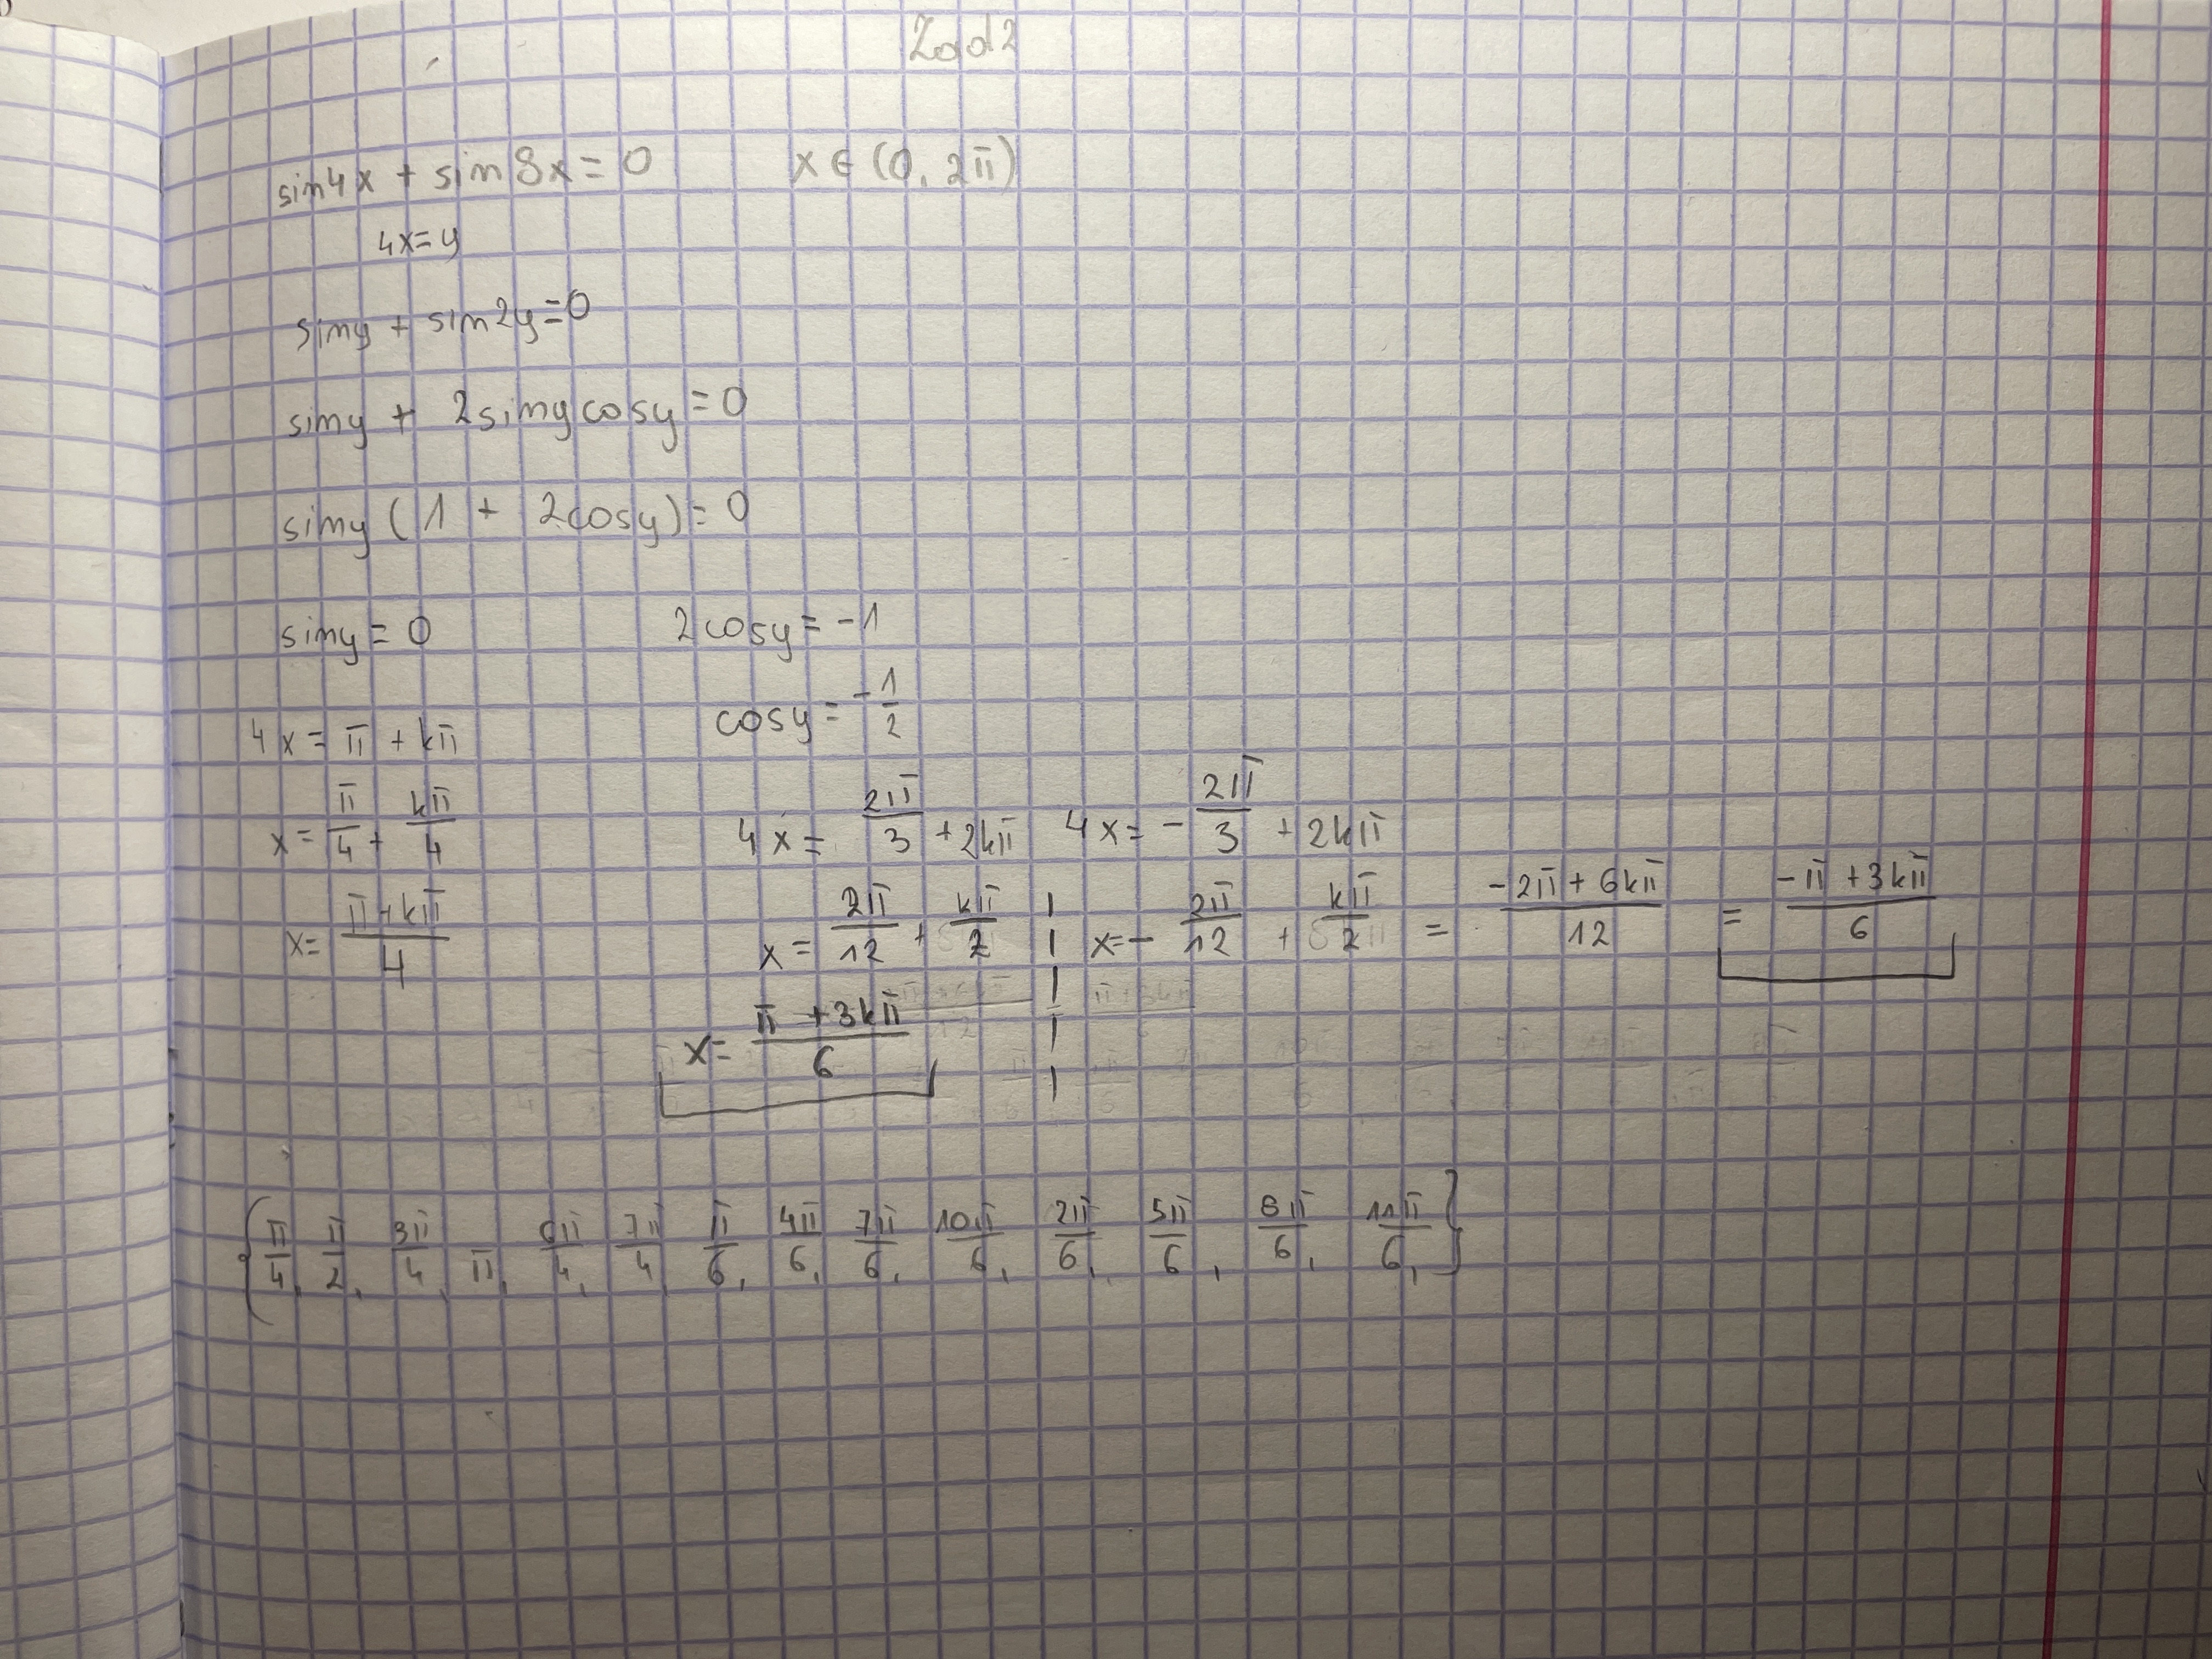 Zad 2
sin4x + sin8x = 0    x ∈ (0, 2π)
4x = y
siny + sin2y = 0
siny + 2sinycosy = 0
siny (1 + 2cosy) = 0
siny = 0    2cosy = -1
cosy = -1/2
4x = π + kπ
x = π/4 + kπ/4    4x = 2π/3 + 2kπ    4x = - 2π/3 + 2kπ
x = π+kπ/4    x = 2π/12 + kπ/2    x = - 2π/12 + kπ/2 = -2π + 6kπ/12 = -π + 3kπ/6
x = π + 3kπ/6
{π/4, π/2, 3π/4, π, 6π/4, 7π/4, π/6, 4π/6, 7π/6, 10π/6, 2π/6, 5π/6, 8π/6, 11π/6,}